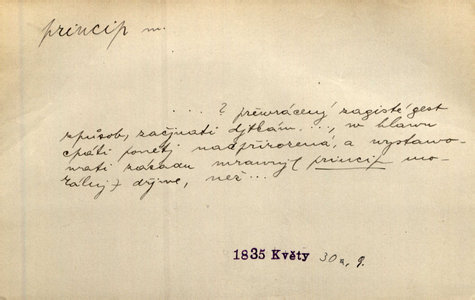 princip m.
. . . . ? převrácený zagisté gest
způsob, začjnati djtkám . . ., w hlawu
cpáti ponětj nadpřirozená, a wystawo-
wati zásadu mrawnj (princip mo-
rálnj) dřjwe, než . . .
1835 Květy 30a, 9.